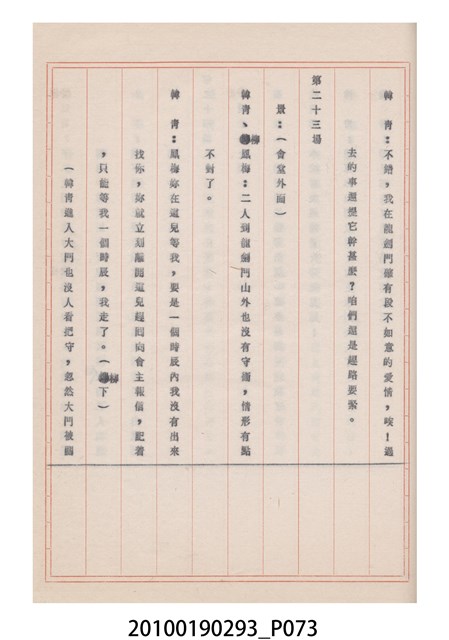 韓　青：不錯，我在龍劍門雖有段不如意的愛情，唉！過
去的事還提它幹甚麼？咱們還是趕路要緊。
第二十三場
景：（會堂外面）
韓青、柳鳳梅：二人到龍劍門山外也沒有守衛，情形有點
不對了。
韓　青：鳳梅妳在這兒等我，要是一個時辰內我沒有出來
找你，妳就立刻離開這兒趕回向會主報信，記着
，只能等我一個時辰，我走了。（柳下）
（韓青進入大門也沒人看把守，忽然大門被關
20100190293_P073